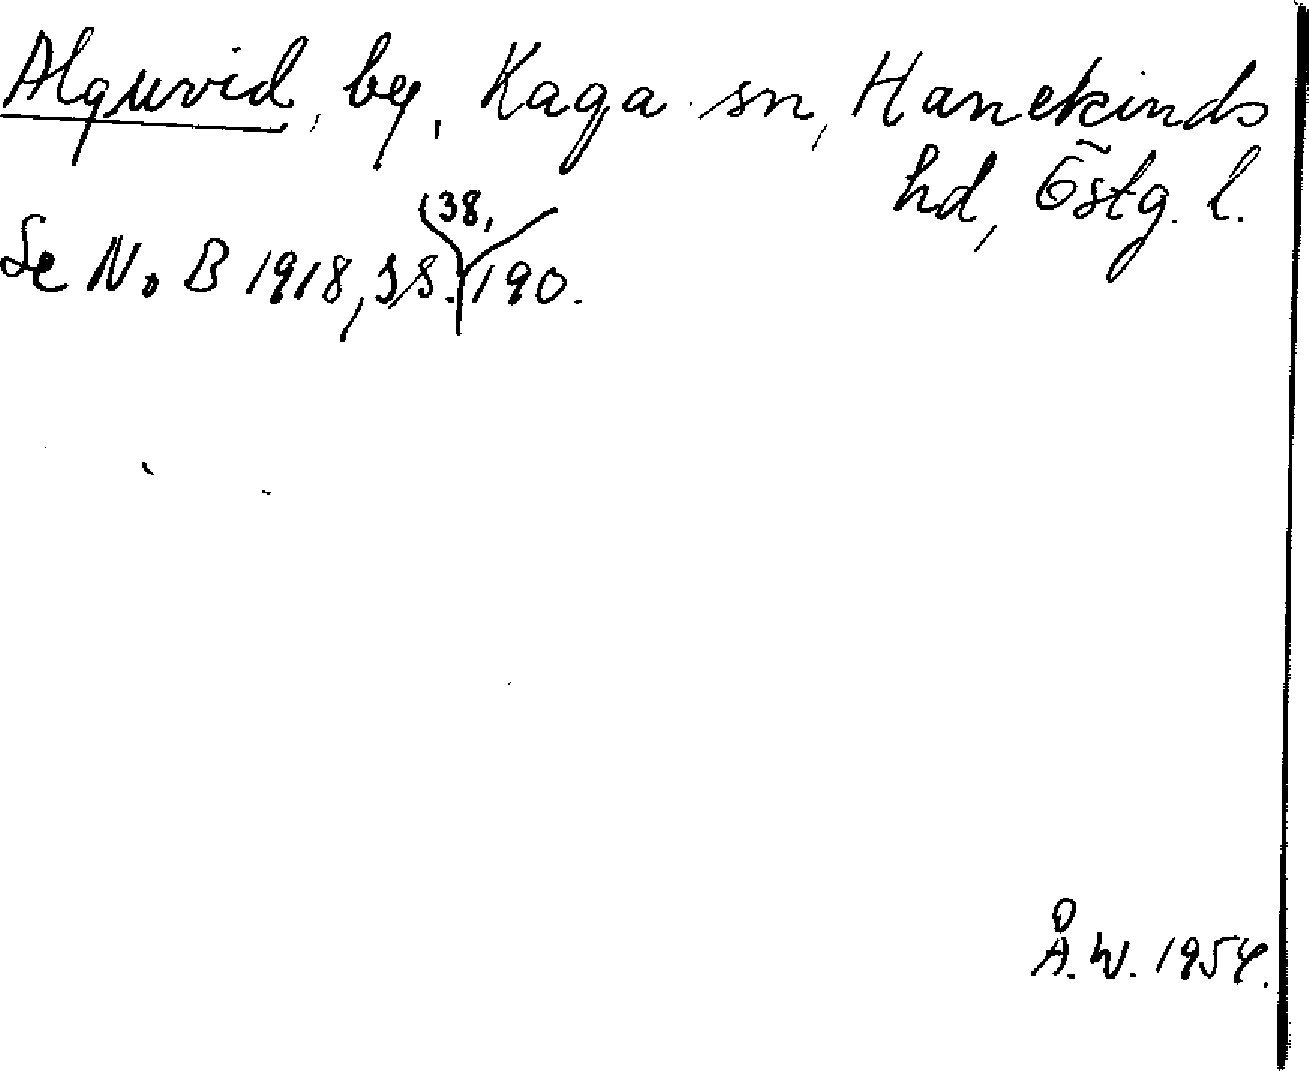 Alguvid, by, Kaga sn, Hanekinds
hd, Östg. l.
Se NoB 1918, ss. 38, 190.
Å.W. 1954.